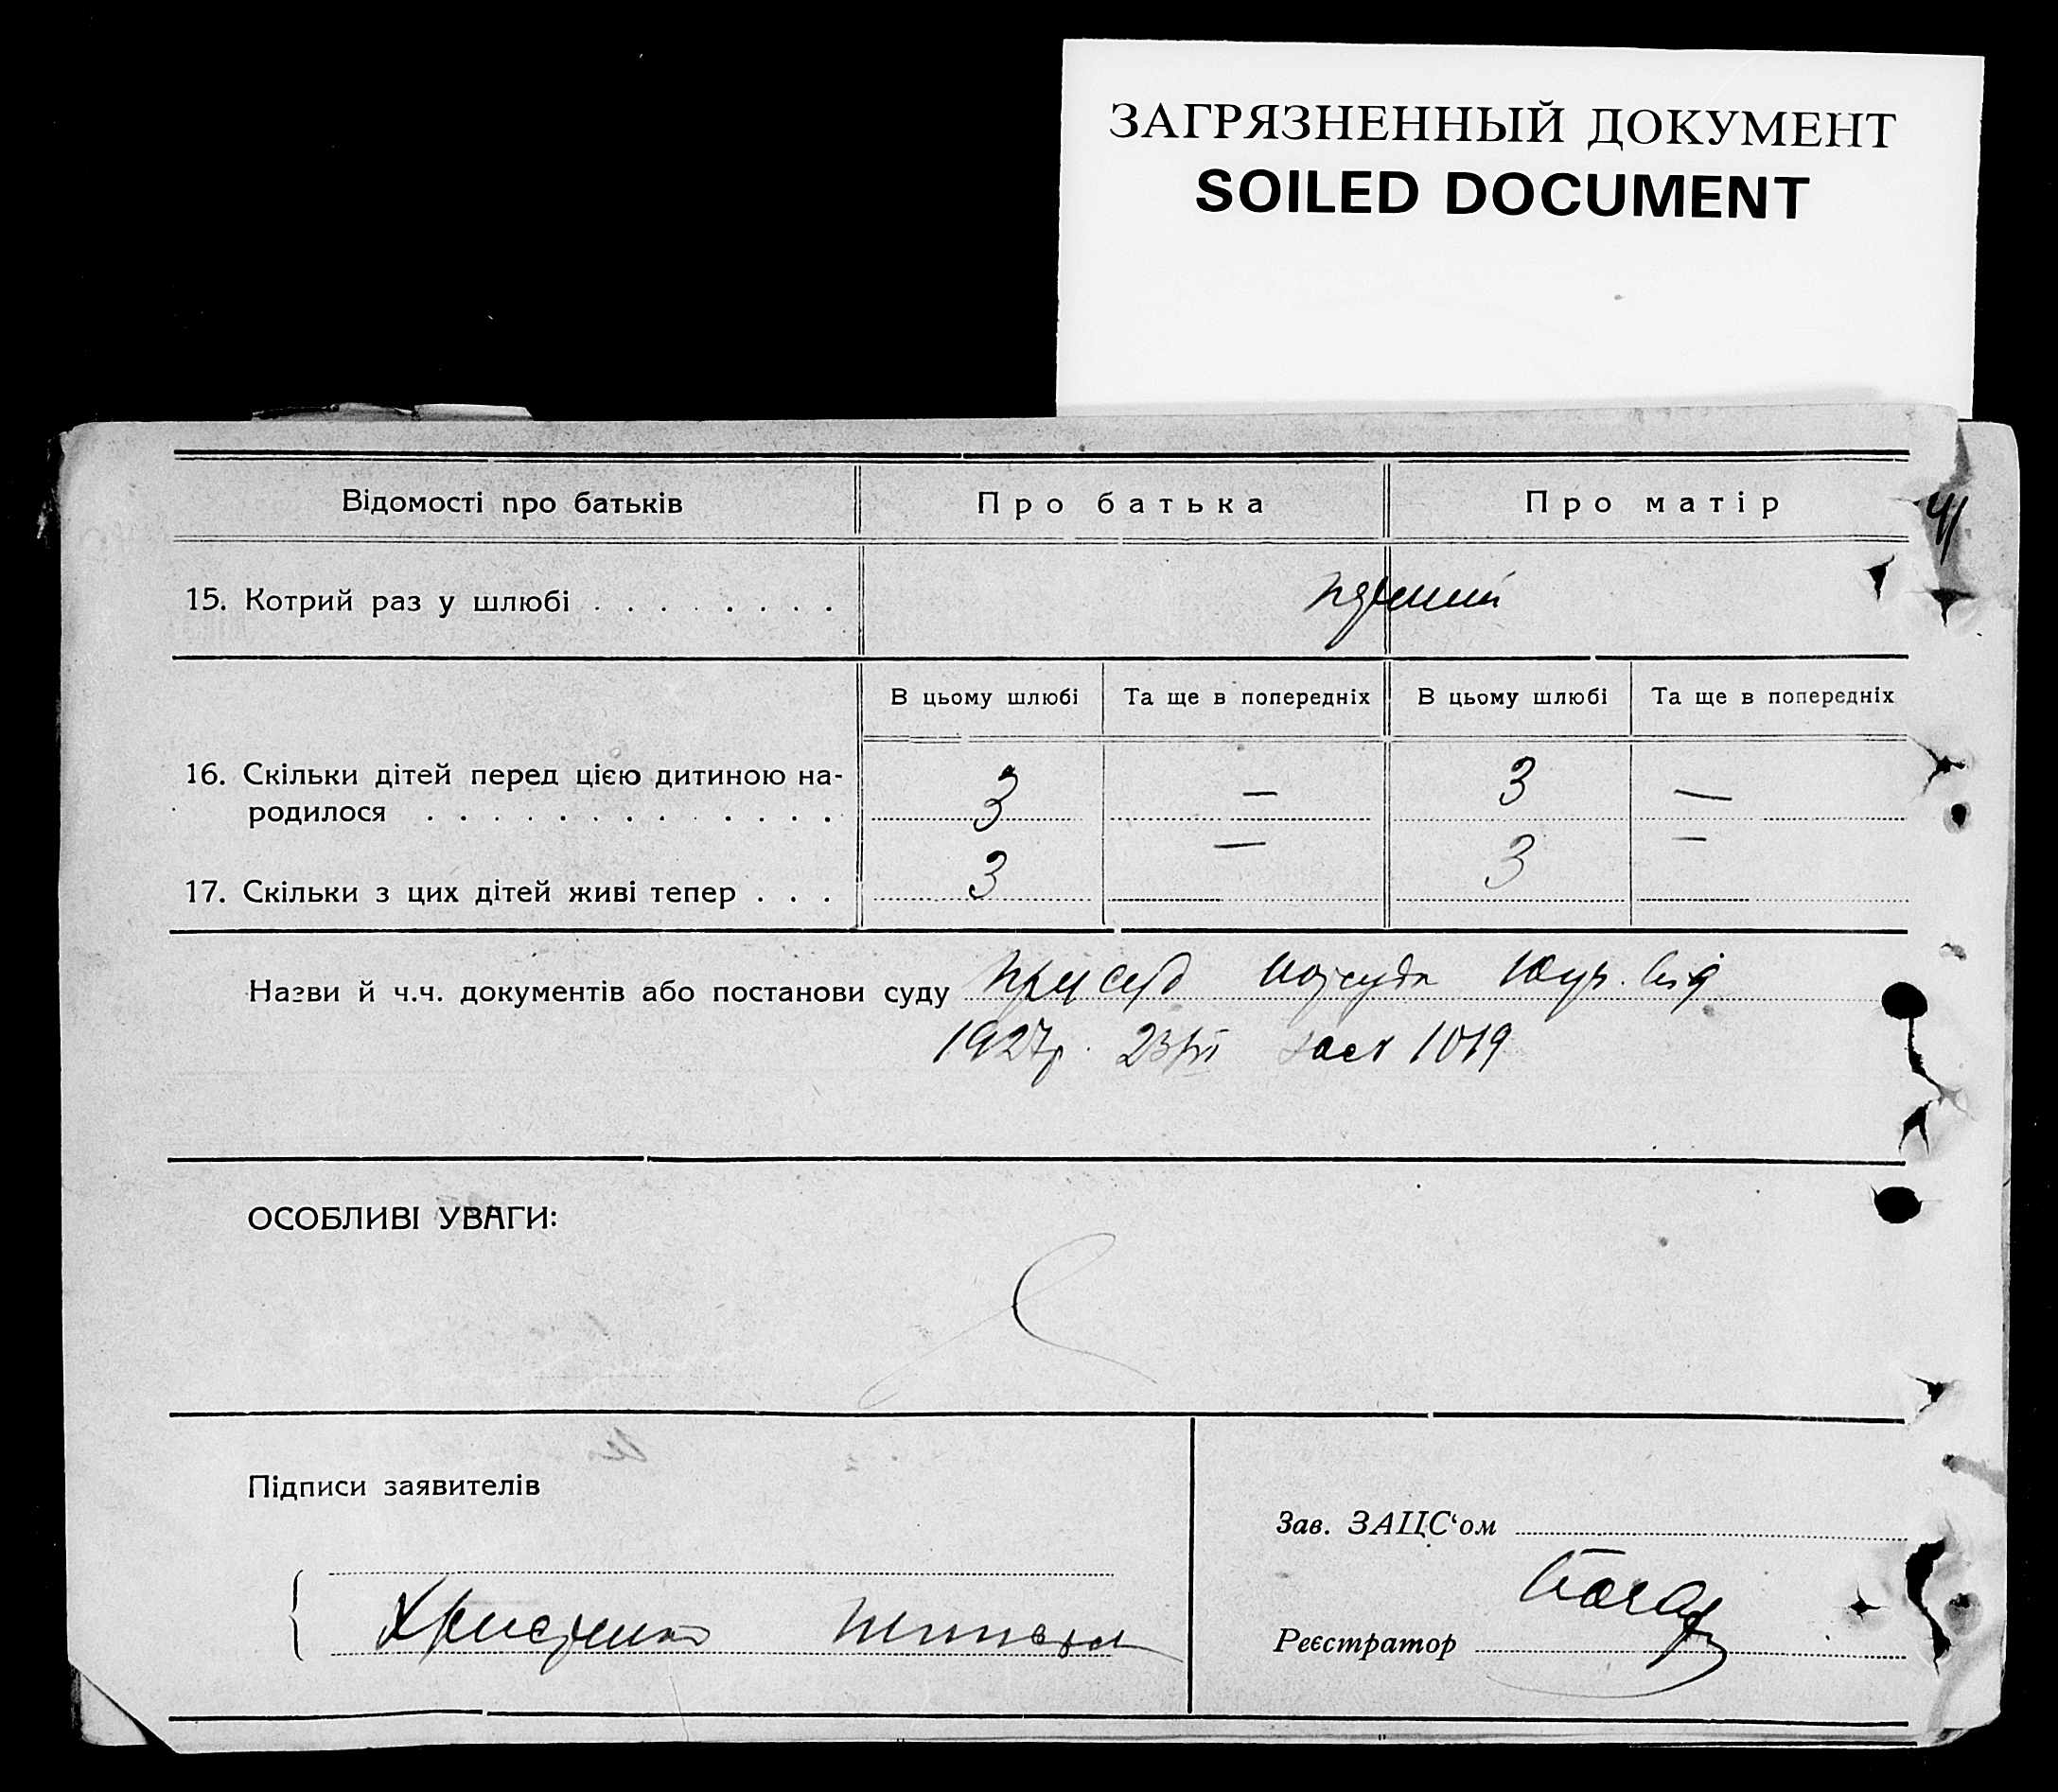 ЗАГРЯЗНЕННЫЙ ДОКУМЕНТ
SOILED DOCUMENT
Відомості про батьків Про батька Про матір
41
15. Котрий раз у шлюбі . . . . . . . .
В цьому шлюбі Та ще в попередніх В цьому шлюбі Та ще в попередніх
16. Скільки дітей перед цією дитиною на-
родилося . . . . . . . . . . . . . 3 — 3 —
17. Скільки з цих дітей живі тепер . . . 3 — 3 —
Назви й ч.ч. документів або постанови суду
1927р. 1019
ОСОБЛИВІ УВАГИ:
Підписи заявителів
Зав. ЗАЦС‘ом
Реєстратор